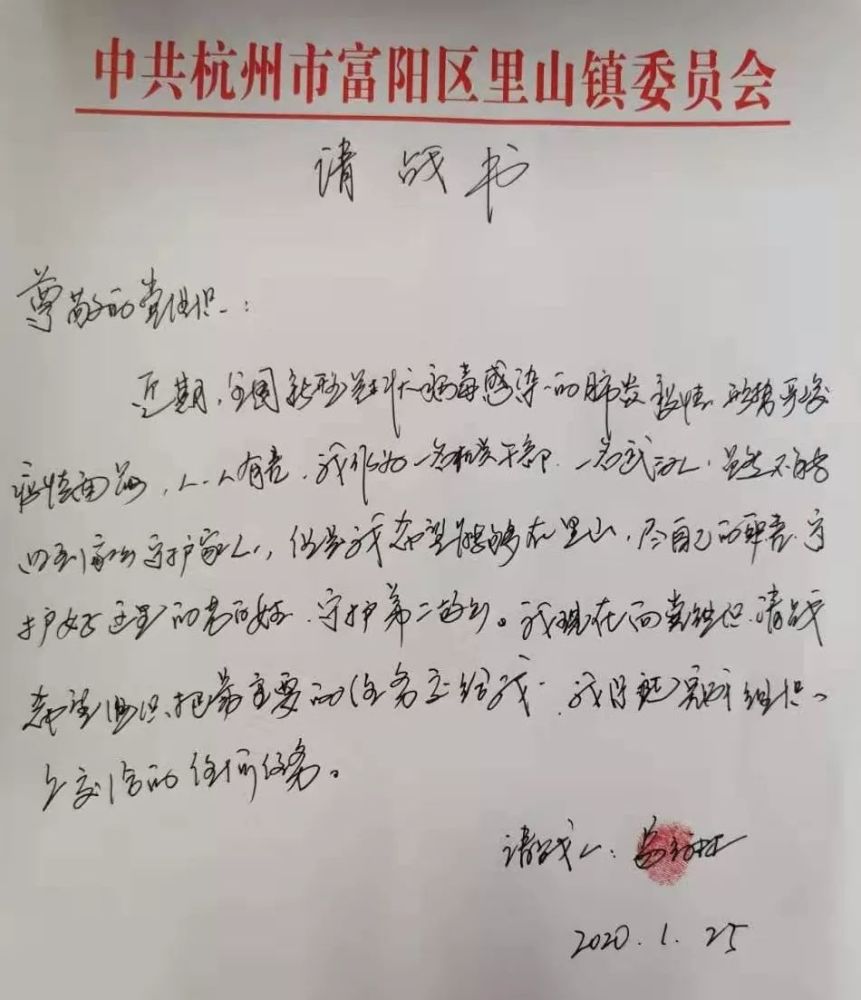 中共杭州市富阳区里山镇委员会
请战书
尊敬的党组织：
近期，全国新型冠状病毒感染的肺炎疫情形势严峻
疫情面前，人人有责，我作为一名机关干部，一名武汉人，虽然不能
回到家乡守护家人，但是我希望能够在里山，尽自己的职责，守
护好这里的老百姓，守护第二故乡。我现在向党组织请战
希望组织把最重要的任务交给我，我保证完成组织
上交给的任何任务。
请战人：
2020.1.25